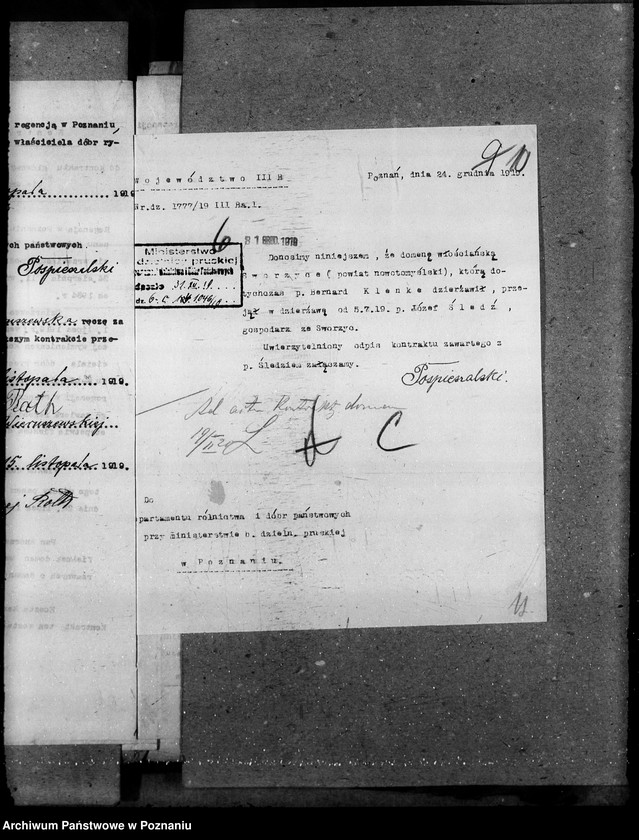 regencją w Poznaniu
właściciela dóbr ry-
1919
ch państwowych.
Pospieszalski
ręczę za
szym kontrakcie prze-
listopada 1919.
Rath
Wierzuszowskiej
15. listopada 1919.
ej Rath
10
Województwo III B
Poznań, dnia 24. grudnia 1919.
Nr.dz. 1777/19 III Ba.1.
6
31 GRUD. 1919
Ministerstwo
dzielnicy pruskiej
31.XII.19.
Donosimy niniejszem, że domenę włościańską
Sworzyce ( powiat nowotomyślski), którą do-
tychczas p. Bernard Klenke dzierżawił, prze-
jął w dzierżawę od 5.7.19 p. Józef Śledź ,
gospodarz ze Sworzyc.
Uwierzytelniony odpis kontraktu zawartego z
p. Śledziem załączamy.
Pospieszalski.
Ad acta
19/II 20
C
Do
epartamentu rolnictwa i dóbr państwowych
przy ministerstwie b. dzieln. pruskiej
w Poznaniu.
11
Archiwum Państwowe w Poznaniu